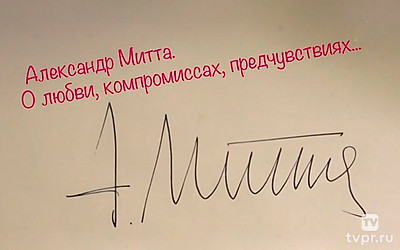 Александр Митта.
О любви, компромиссах, предчувствиях...
А. Митта
TV
tvpr.ru